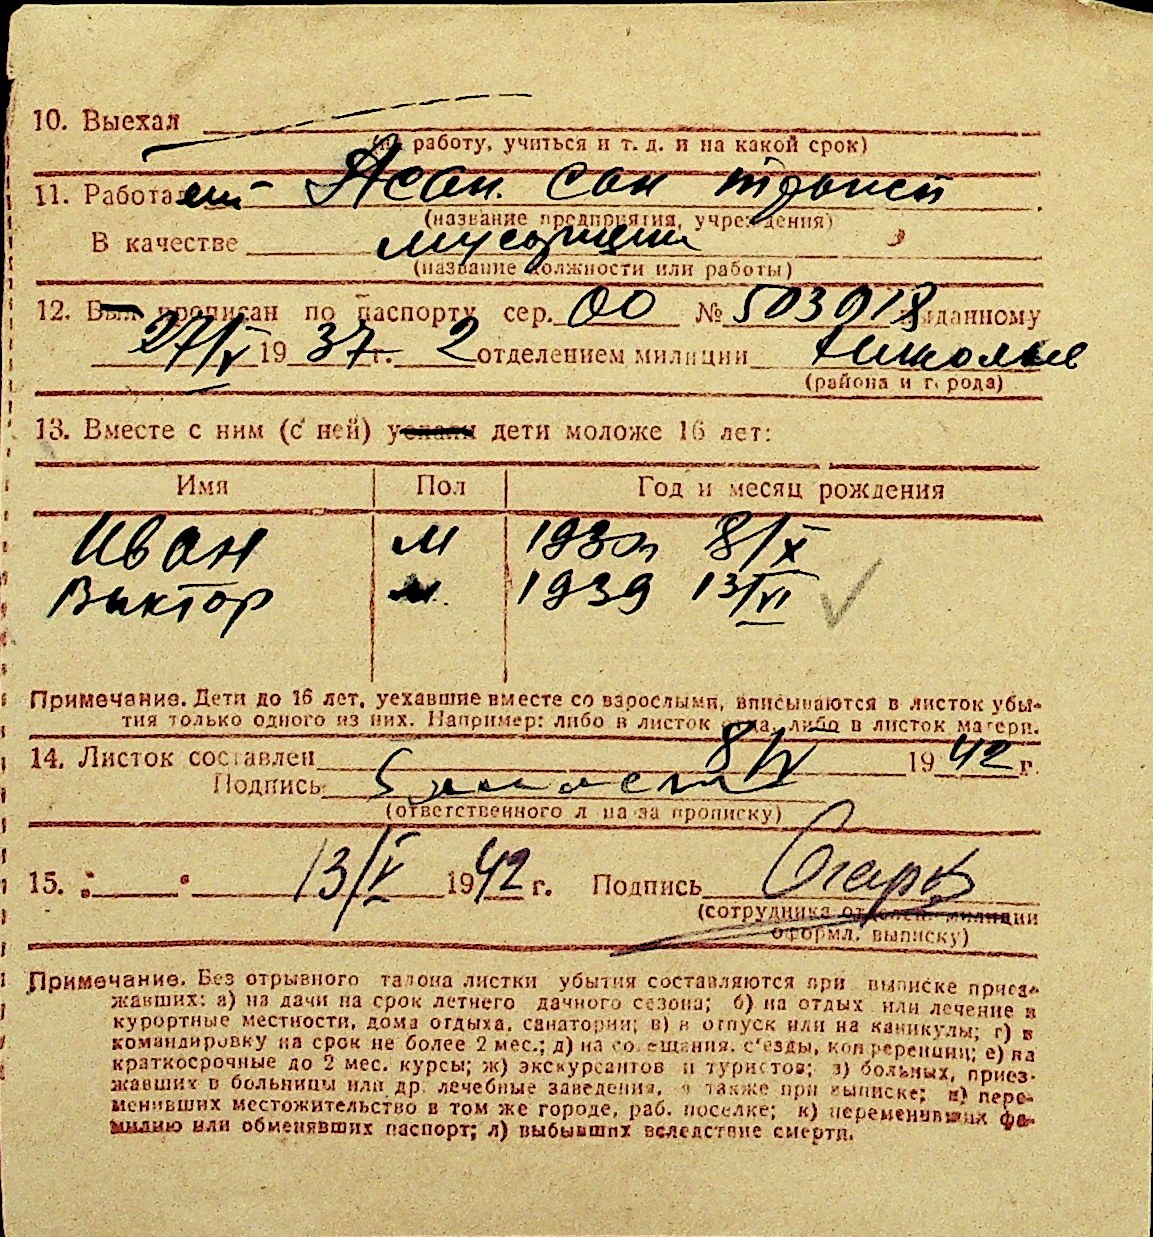 10. Выехал
(на работу, учиться и т. д. и на какой срок)
11. Работа Асан. сан трыист
(название предприятия, учреждения)
В качестве мусорщик
(название должности или работы)
12. Был прописан по паспорту сер. ОО № 503918 выданному
27/V 1937 г. 2 отделением милиции
(района и города)
13. Вместе с ним (с ней) уехали дети моложе 16 лет:
Имя Пол Год и месяц рождения
Иван м 193 8/X
Виктор м. 1939 13/VI
Примечание. Дети до 16 лет, уехавшие вместе со взрослыми, вписываются в листок убы-
тия только одного из них. Например: либо в листок отца, либо в листок матери.
14. Листок составлен 8/IV 1942 г.
Подпись
(ответственного лица за прописку)
15. „ “ 13/V 1942 г. Подпись
(сотрудника отделен. милиции
оформл. выписку)
Примечание. Без отрывного талона листки убытия составляются при выписке приез-
жавших: а) на дачи на срок летнего дачного сезона; б) на отдых или лечение в
курортные местности, дома отдыха, санатории; в) в отпуск или на каникулы; г) в
командировку на срок не более 2 мес.; д) на совещания, с'езды, конференции; е) на
краткосрочные до 2 мес. курсы; ж) экскурсантов и туристов; з) больных, приез-
жавших в больницы или др. лечебные заведения, а также при выписке; и) пере-
менивших местожительство в том же городе, раб. поселке; к) переменивших фа-
милию или обменявших паспорт; л) выбывших вследствие смерти.